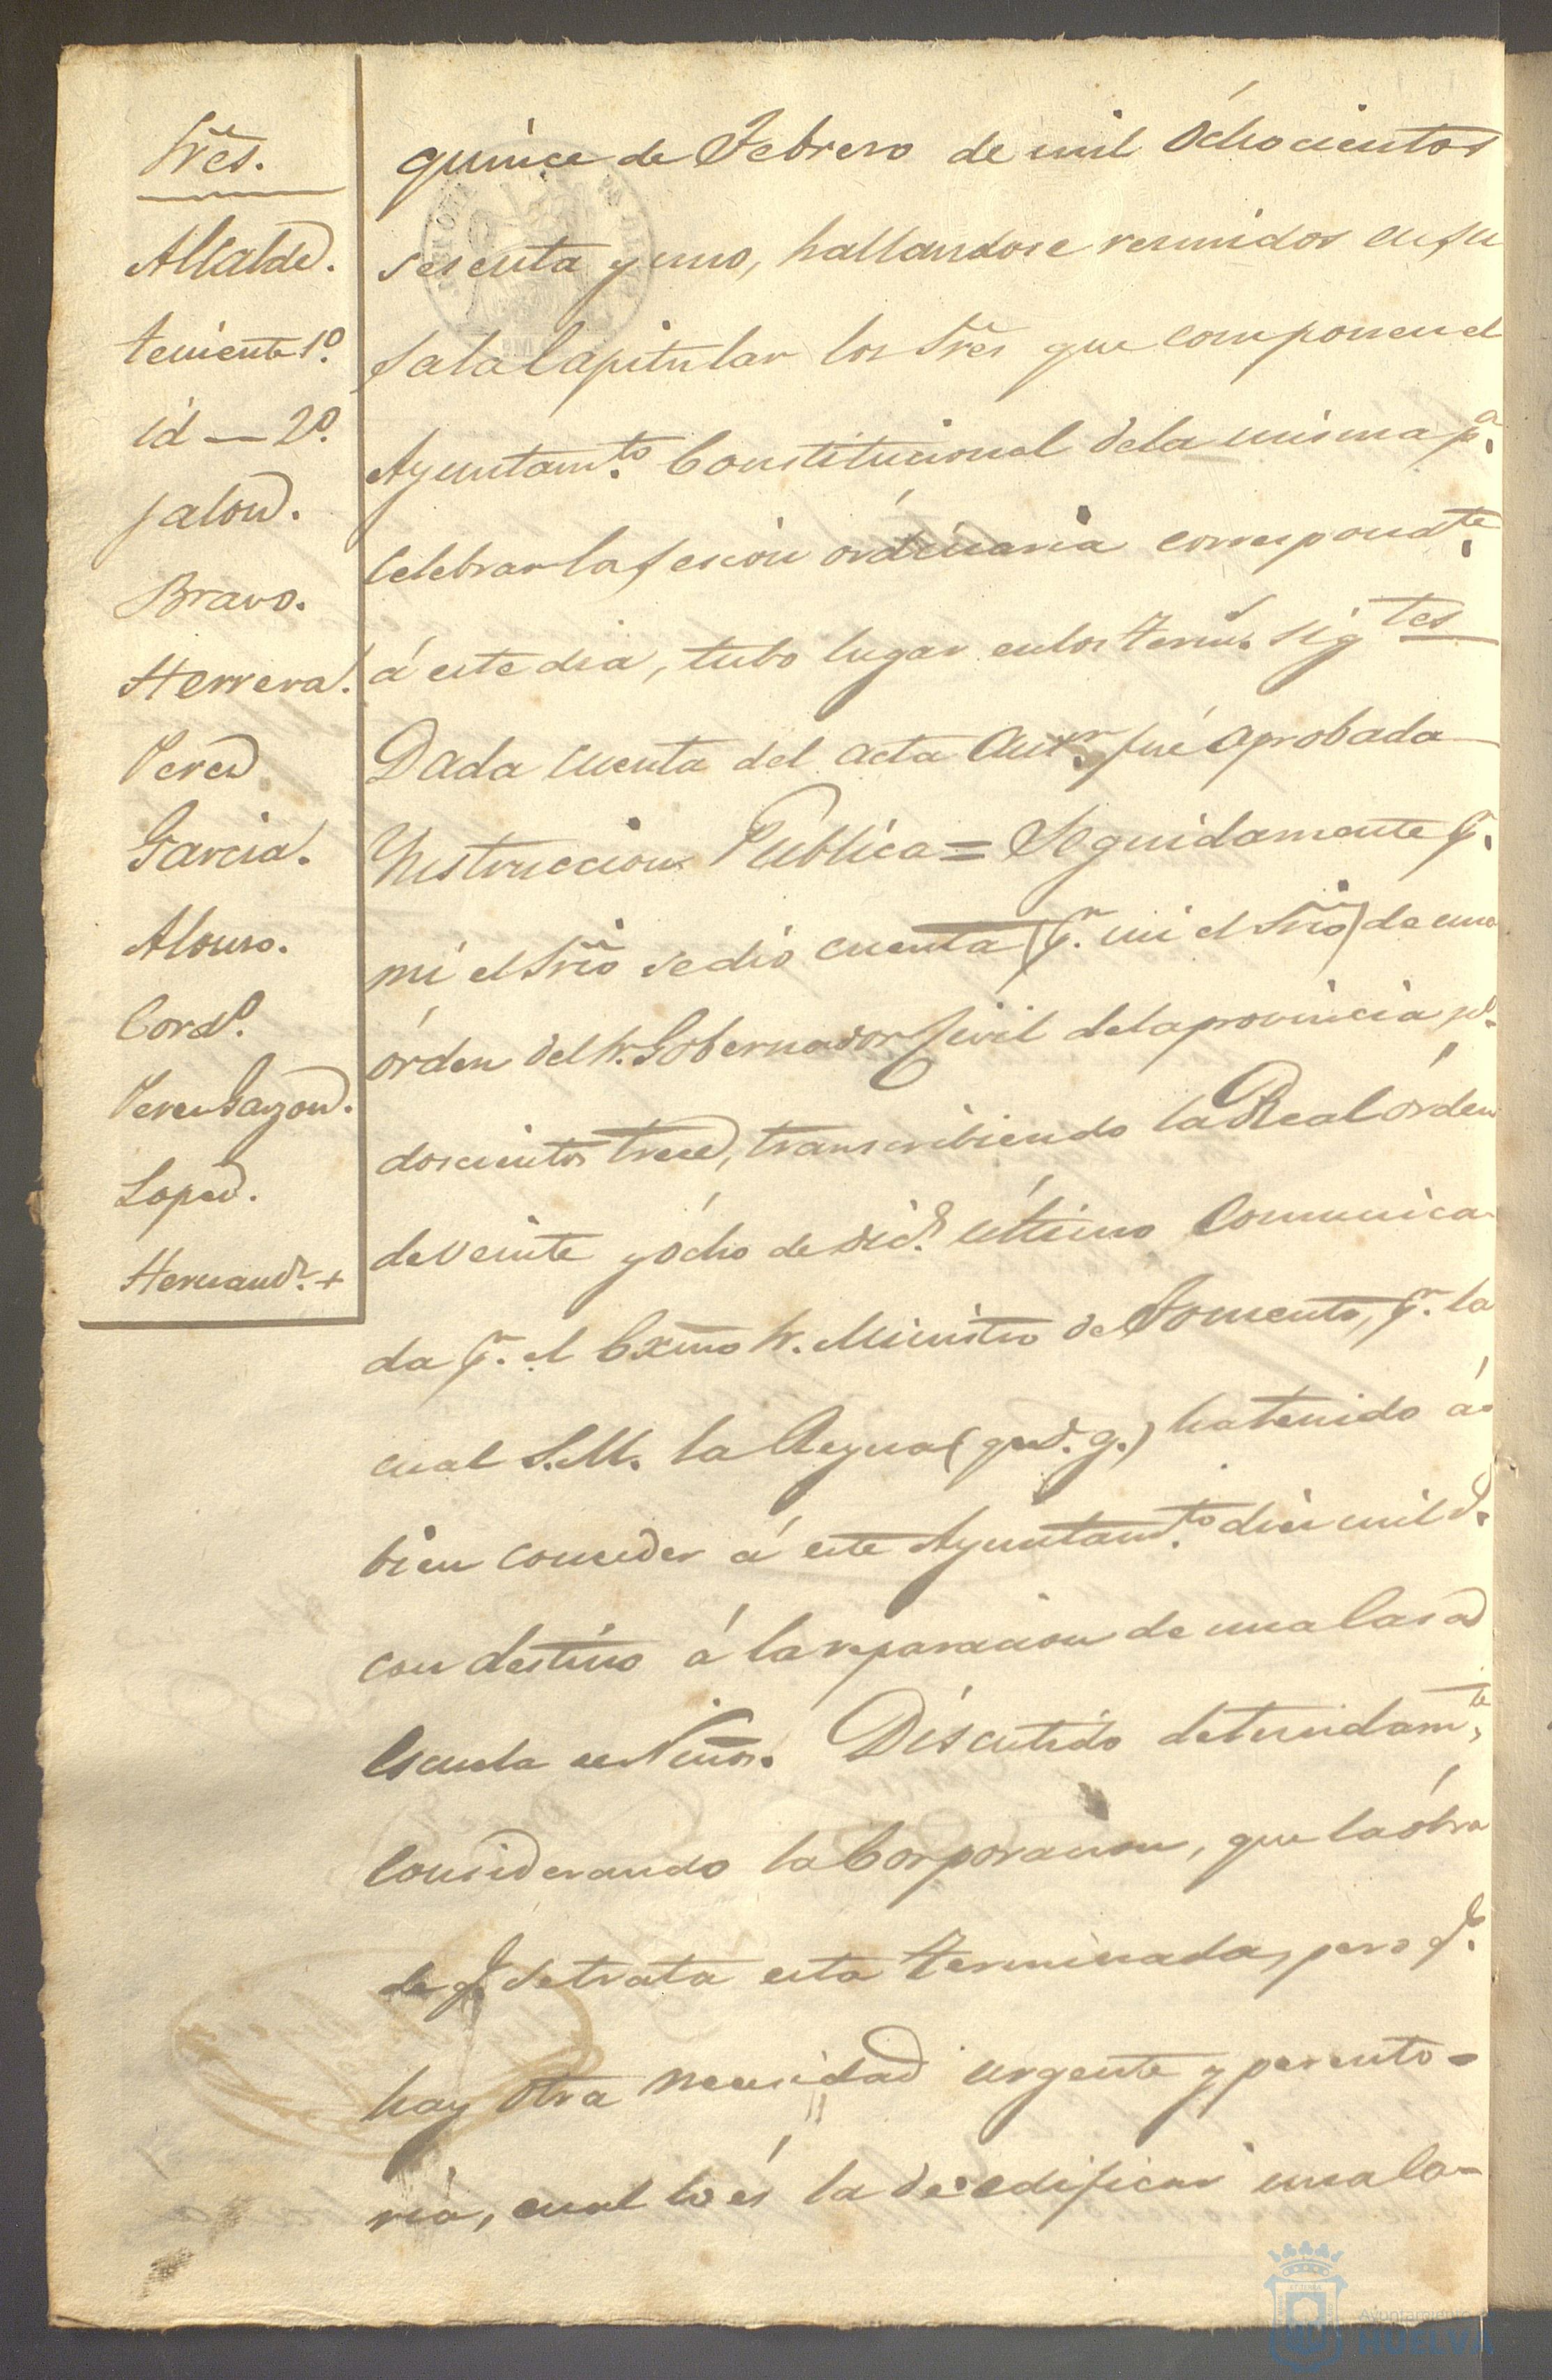 Sres.
Alcalde.
teniente 1º.
id — 2º.
Jalon.
Bravo.
Herrera.
Perez
Garcia.
Alonso.
Cordº.
Perez Gazon.
Lopez.
Hernandz. +
quince de Febrero de mil óchocientos
sesenta y uno, hallandose reunidos en su
sala Capitular los Sres que componen el
Ayuntamto. Constitucional de la misma pª.
celebrar la sesion órdinaria correspondte.
á este dia, tubo lugar en los term.s sigtes
Dada cuenta del acta antr. fué aprobada
Ynstruccion Publica = Seguidamente pr.
mi el Srio se dio cuenta (pr. mi el Srio) de una
órden del Sr. Gobernador Civil de la provincia nº.
doscientos trece, transcribiendo la Real órden
de veinte y ócho de Dice. último comunica-
da pr. el Exmo Sr. Ministro de Fomento, pr. la
cual S.M. la Reyna (q. D. g.) ha tenido á
bien conceder á este Ayuntamto. diez mil r.
con destino á la reparacion de una Casa
escuela de Niños. Discutido detenidamte,
considerando la Corporacion, que la óbra
de q. se trata esta terminada, pero q.
hay otra necesidad urgente y perento-
ria, cual lo és la de edificar una Ca-
Ayuntamiento
HUELVA